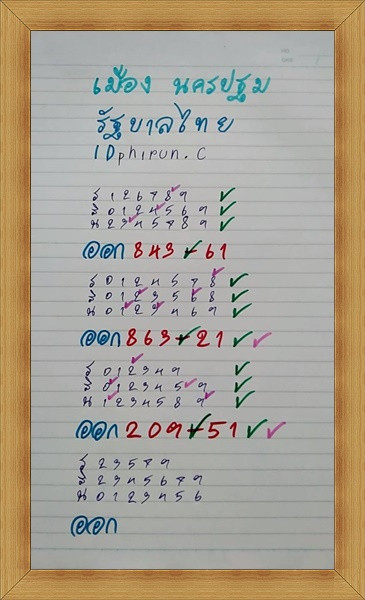 เมือง นครปฐม
รัฐบาลไทย
IDphirun.C
รุ 0 1 2 6 7 8 9
บิ 0 1 2 4 5 6 9
น 2 3 4 5 7 8 9
ออก 843 - 61
รุ 0 1 2 4 5 7 8
บิ 0 1 2 3 5 6 8
น 0 1 2 3 4 6 9
ออก 863 - 21
รุ 0 1 2 3 4 9
บิ 0 1 2 3 4 5 7 9
น 1 2 3 4 5 8 9
ออก 209 - 51
รุ 2 3 5 7 9
บิ 2 3 4 5 6 7 9
น 0 1 2 3 4 5 6
ออก